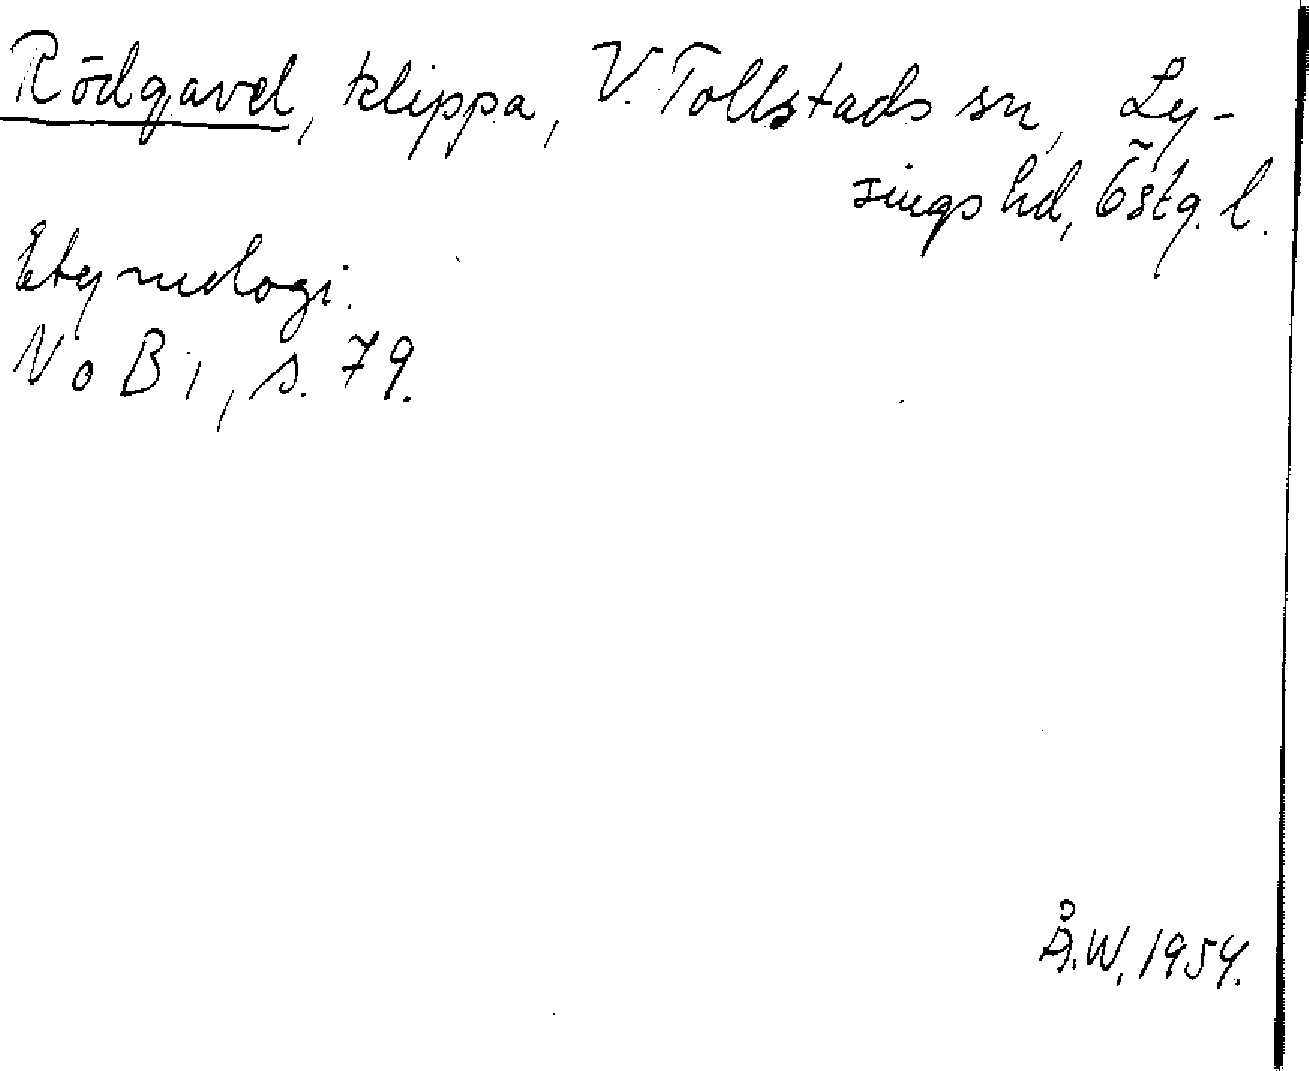 Rödgavel, klippa, V. Tollstads sn, Ly-
sings hd, Östg. l.
Etymologi.
NoB 1, s. 79.
Å.W. 1954.